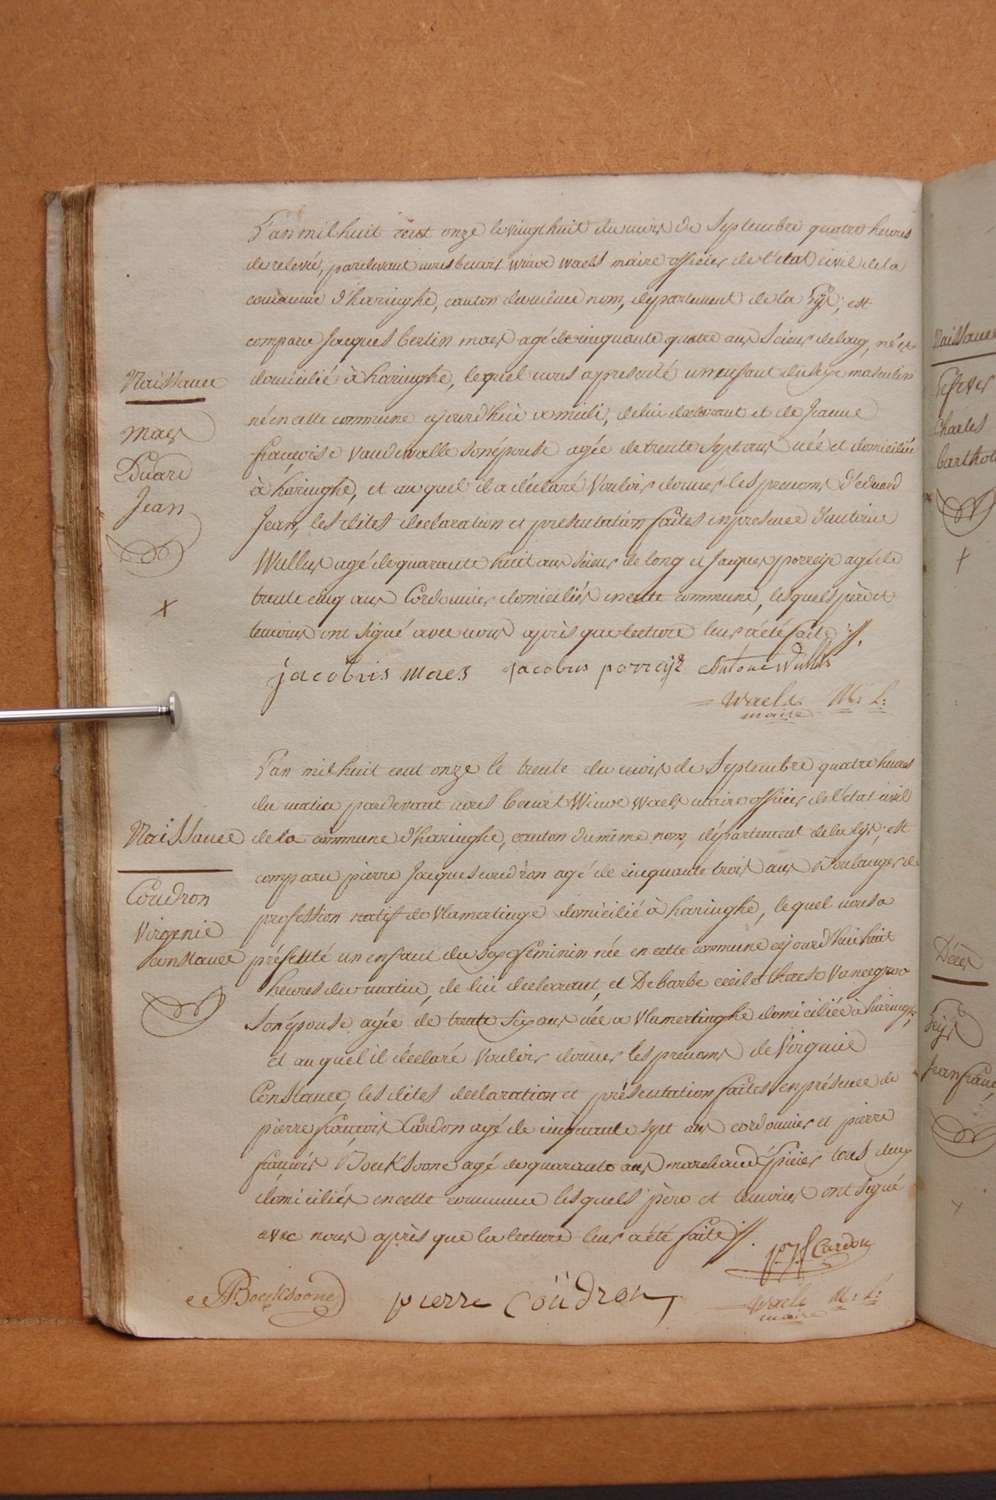 L'an mil huit cent onze le vingt huit du mois de Septembre quatre heures
de relevé, pardevant nous Winoc Waels maire officier de l'état civil de la
commune d'haringhe, canton du même nom, département de la Lys; est
comparu Jacques bertin maes agé de cinquante quatre ans Scieur de long, né et
Naissance
domicilié à haringhe, lequel nous a presenté un enfant du sexe masculin
né en cette commune ajourd'hui a midi, de lui declarant et de Jeanne
maes
françoise vandewalle son épouse agée de trente sept ans née et domiciliée
Eduard
à haringhe, et au quel il a déclaré Vouloir donner les prenoms d'eduard
Jean
Jean, les dites declaration et presentation faites en presence d'antoine
Wullus agé de quarante huit ans Scieur de long et Jacques porreije agé de
trente cinq ans Cordonnier domiciliés en cette commune, lesquels père et
x
temoins ont signé avec nous après que lecture leur a été faite //.
jacobus maes jacobus porreije Antone Wullus
Waels M. L.
maire
L'an mil huit cent onze le trente du mois de Septembre quatre heures
du matin pardevant nous Winoc Waels maire officier de l'état civil
Naissance
de la commune d'haringhe, canton du même nom, département de la lys; est
comparu pierre Jacques coudron agé de cinquante trois ans Boulanger de
Coudron
profession natif de Vlamertinge domicilié à haringhe, lequel nous a
Virgenie
Constance
présenté un enfant du sexe féminin née en cette commune ajourd'hui huit
heures du matin, de lui declarant, et De barbe cecile therese
Son épouse agée de trente six ans née a Vlamertinghe domiciliée à haringhe,
et au quel il déclaré Vouloir donner les prenoms de Virginie
Constance, les dites declaration et présentation faites en présence de
pierre françois Cardon agé de cinquante sept ans cordonnier et pierre
françois Boucksoone agé de quarante ans marchand épicier tous deux
domiciliés en cette commune lesquels père et temoins ont signé
avec nous après que la lecture leur a été faite //.
Cardon
Boucksoone pierre Coudron
Waels M. L.
maire
Naissance
Charles
barthol
Déces
Seijs
Jean franc